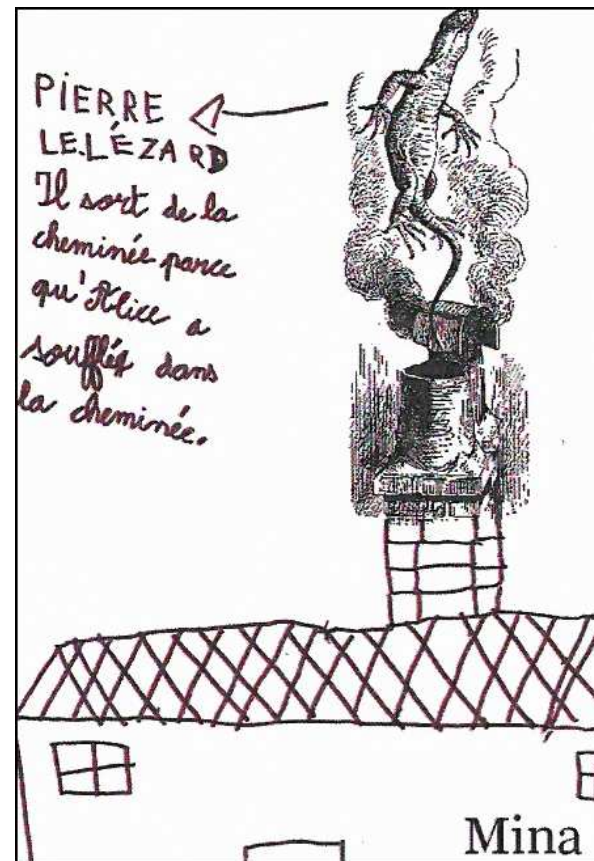 PIERRE
LE LÉZARD
Il sort de la
cheminée parce
qu'Alice a
soufflé dans
la cheminée.
Mina